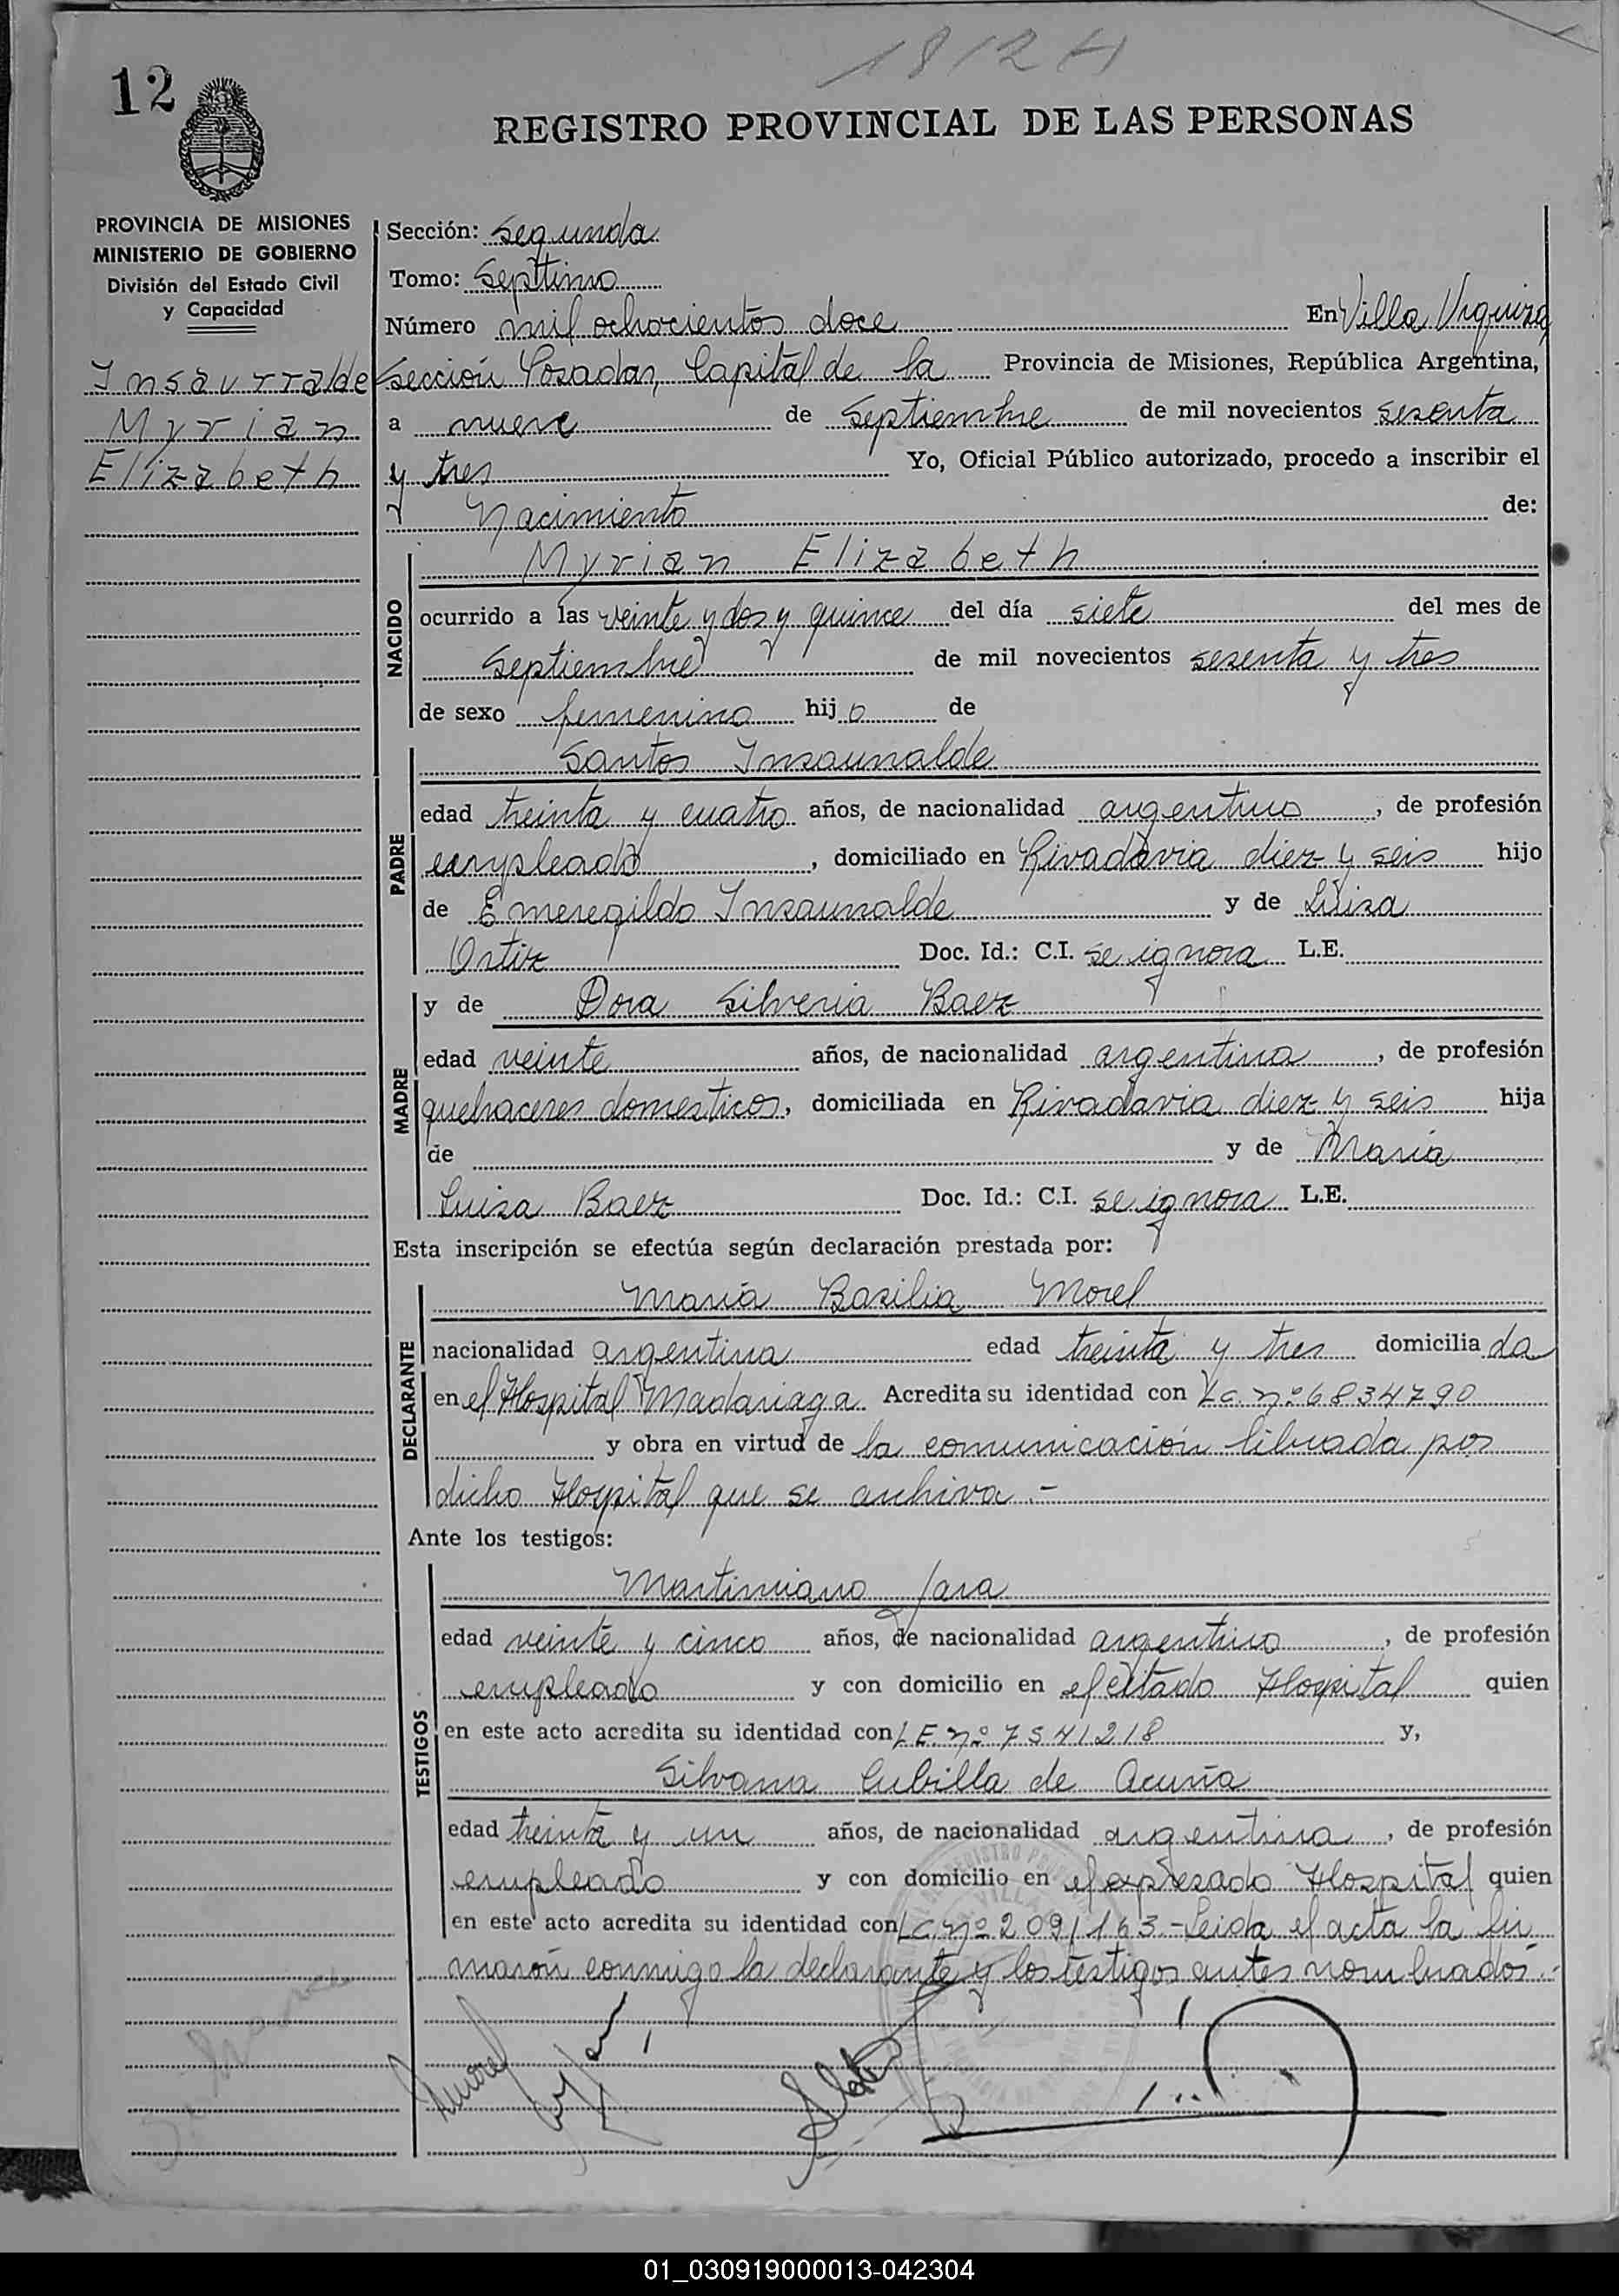 1812 H
12
REGISTRO PROVINCIAL DE LAS PERSONAS
PROVINCIA DE MISIONES
MINISTERIO DE GOBIERNO
División del Estado Civil
y Capacidad
Insaurralde
Myrian
Elizabeth
Sección: Segunda
Tomo: Septimo
Número mil ochocientos doce En Villa Urquiza
Sección Posadas, Capital de la Provincia de Misiones, República Argentina,
a nueve de Septiembre de mil novecientos sesenta
y tres Yo, Oficial Público autorizado, procedo a inscribir el
Nacimiento de:
NACIDO
Myrian Elizabeth
ocurrido a las veinte y dos y quince del día siete del mes de
Septiembre de mil novecientos sesenta y tres
de sexo femenino hij o de
PADRE
Santos Insaurralde
edad treinta y cuatro años, de nacionalidad argentino, de profesión
empleado, domiciliado en Rivadavia diez y seis hijo
de Emeregildo Insaurralde y de Luisa
Ortiz Doc. Id.: C.I. se ignora L.E.
MADRE
y de Dora Silveria Baez
edad veinte años, de nacionalidad argentina, de profesión
quehaceres domesticos, domiciliada en Rivadavia diez y seis hija
de y de Maria
Luisa Baez Doc. Id.: C.I. se ignora L.E.
Esta inscripción se efectúa según declaración prestada por:
DECLARANTE
Maria Basilia Morel
nacionalidad argentina edad treinta y tres domicilia da
en el Hospital Madariaga Acredita su identidad con Lc. nº 6834790
y obra en virtud de la comunicación librada por
dicho Hospital que se archiva.-
Ante los testigos:
TESTIGOS
Martiniano Jara
edad veinte y cinco años, de nacionalidad argentino, de profesión
empleado y con domicilio en el citado Hospital quien
en este acto acredita su identidad con LE. nº 7541218 y,
Silvana Cubilla de Acuña
edad treinta y un años, de nacionalidad argentina, de profesión
empleado y con domicilio en el expresado Hospital quien
en este acto acredita su identidad con LC. nº 2091163.-Leida el acta la fir
maron conmigo la declarante y los testigos antes nombrados.-
Morel
01_030919000013-042304